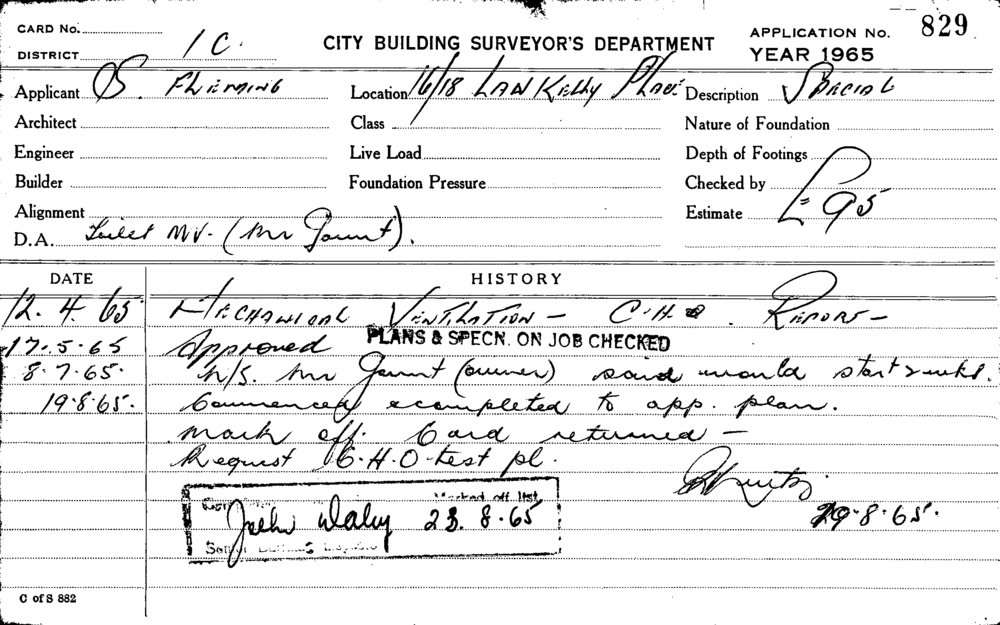 CARD No.
DISTRICT 1 C.
CITY BUILDING SURVEYOR'S DEPARTMENT
APPLICATION No. 829
YEAR 1965
Applicant S. FLEMING
Location 16/18 LANKELLY PLACE
Description SPECIAL
Architect
Class
Nature of Foundation
Engineer
Live Load
Depth of Footings
Builder
Foundation Pressure
Checked by
Alignment
Estimate £ 95
D.A. Toilet M.V. (Mr Gaunt).
DATE HISTORY
12. 4. 65 MECHANICAL VENTILATION - C.H.O. REPORT -
17.5.65 Approved PLANS & SPECN. ON JOB CHECKED
8.7.65. N/S. Mr Gaunt (owner) said would start 2 wks.
19.8.65. Commenced & completed to app. plan.
mark off. Card returned -
Request C.H.O test pl.
19.8.65.
Marked off list
John Daley 23.8.65
Senior Building Inspector
C of S 882